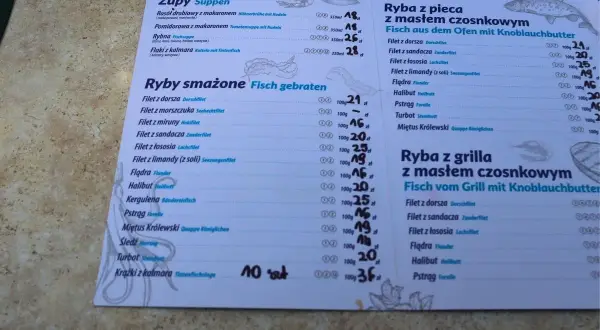 Zupy Suppen
Rosół drobiowy z makaronem Hühnerbrühe mit Nudeln 18,
Pomidorowa z makaronem Tomatensuppe mit Nudeln 18,
Rybna Fischsuppe 26,
Flaki z kalmara 28,
Ryby smażone Fisch gebraten
Filet z dorsza Dorschfilet 100g 21 zł
Filet z morszczuka Seehechtfilet 100g –
Filet z miruny 100g 16 zł
Filet z sandacza Zanderfilet 100g 20 zł
Filet z łososia Lachsfilet 100g 25 zł
Filet z limandy (z soli) Seezungenfilet 100g 19 zł
Flądra Flunder 100g 16 zł
Halibut Heilbutt 100g 20 zł
Kergulena 100g 25 zł
Pstrąg Forelle 100g 16 zł
Miętus Królewski Quappe Königlichen 100g 19 zł
Śledź Hering 100g zł
Turbot 100g 20 zł
Krążki z kalmara Tintenfischringe 10 szt 100g 36 zł
Ryba z pieca
z masłem czosnkowym
Fisch aus dem Ofen mit Knoblauchbutter
Filet z dorsza Dorschfilet 100g 21 zł
Filet z sandacza Zanderfilet 100g 20
Filet z łososia Lachsfilet 100g 25
Filet z limandy (z soli) Seezungenfilet 100g 19
Flądra Flunder 100g 16
Halibut Heilbutt 100g 20
Pstrąg Forelle 100g 16
Turbot 100g 20
Miętus Królewski Quappe Königlichen
Ryba z grilla
z masłem czosnkowym
Fisch vom Grill mit Knoblauchbutter
Filet z dorsza Dorschfilet
Filet z sandacza Zanderfilet
Filet z łososia Lachsfilet
Flądra Flunder
Halibut Heilbutt
Pstrąg Forelle